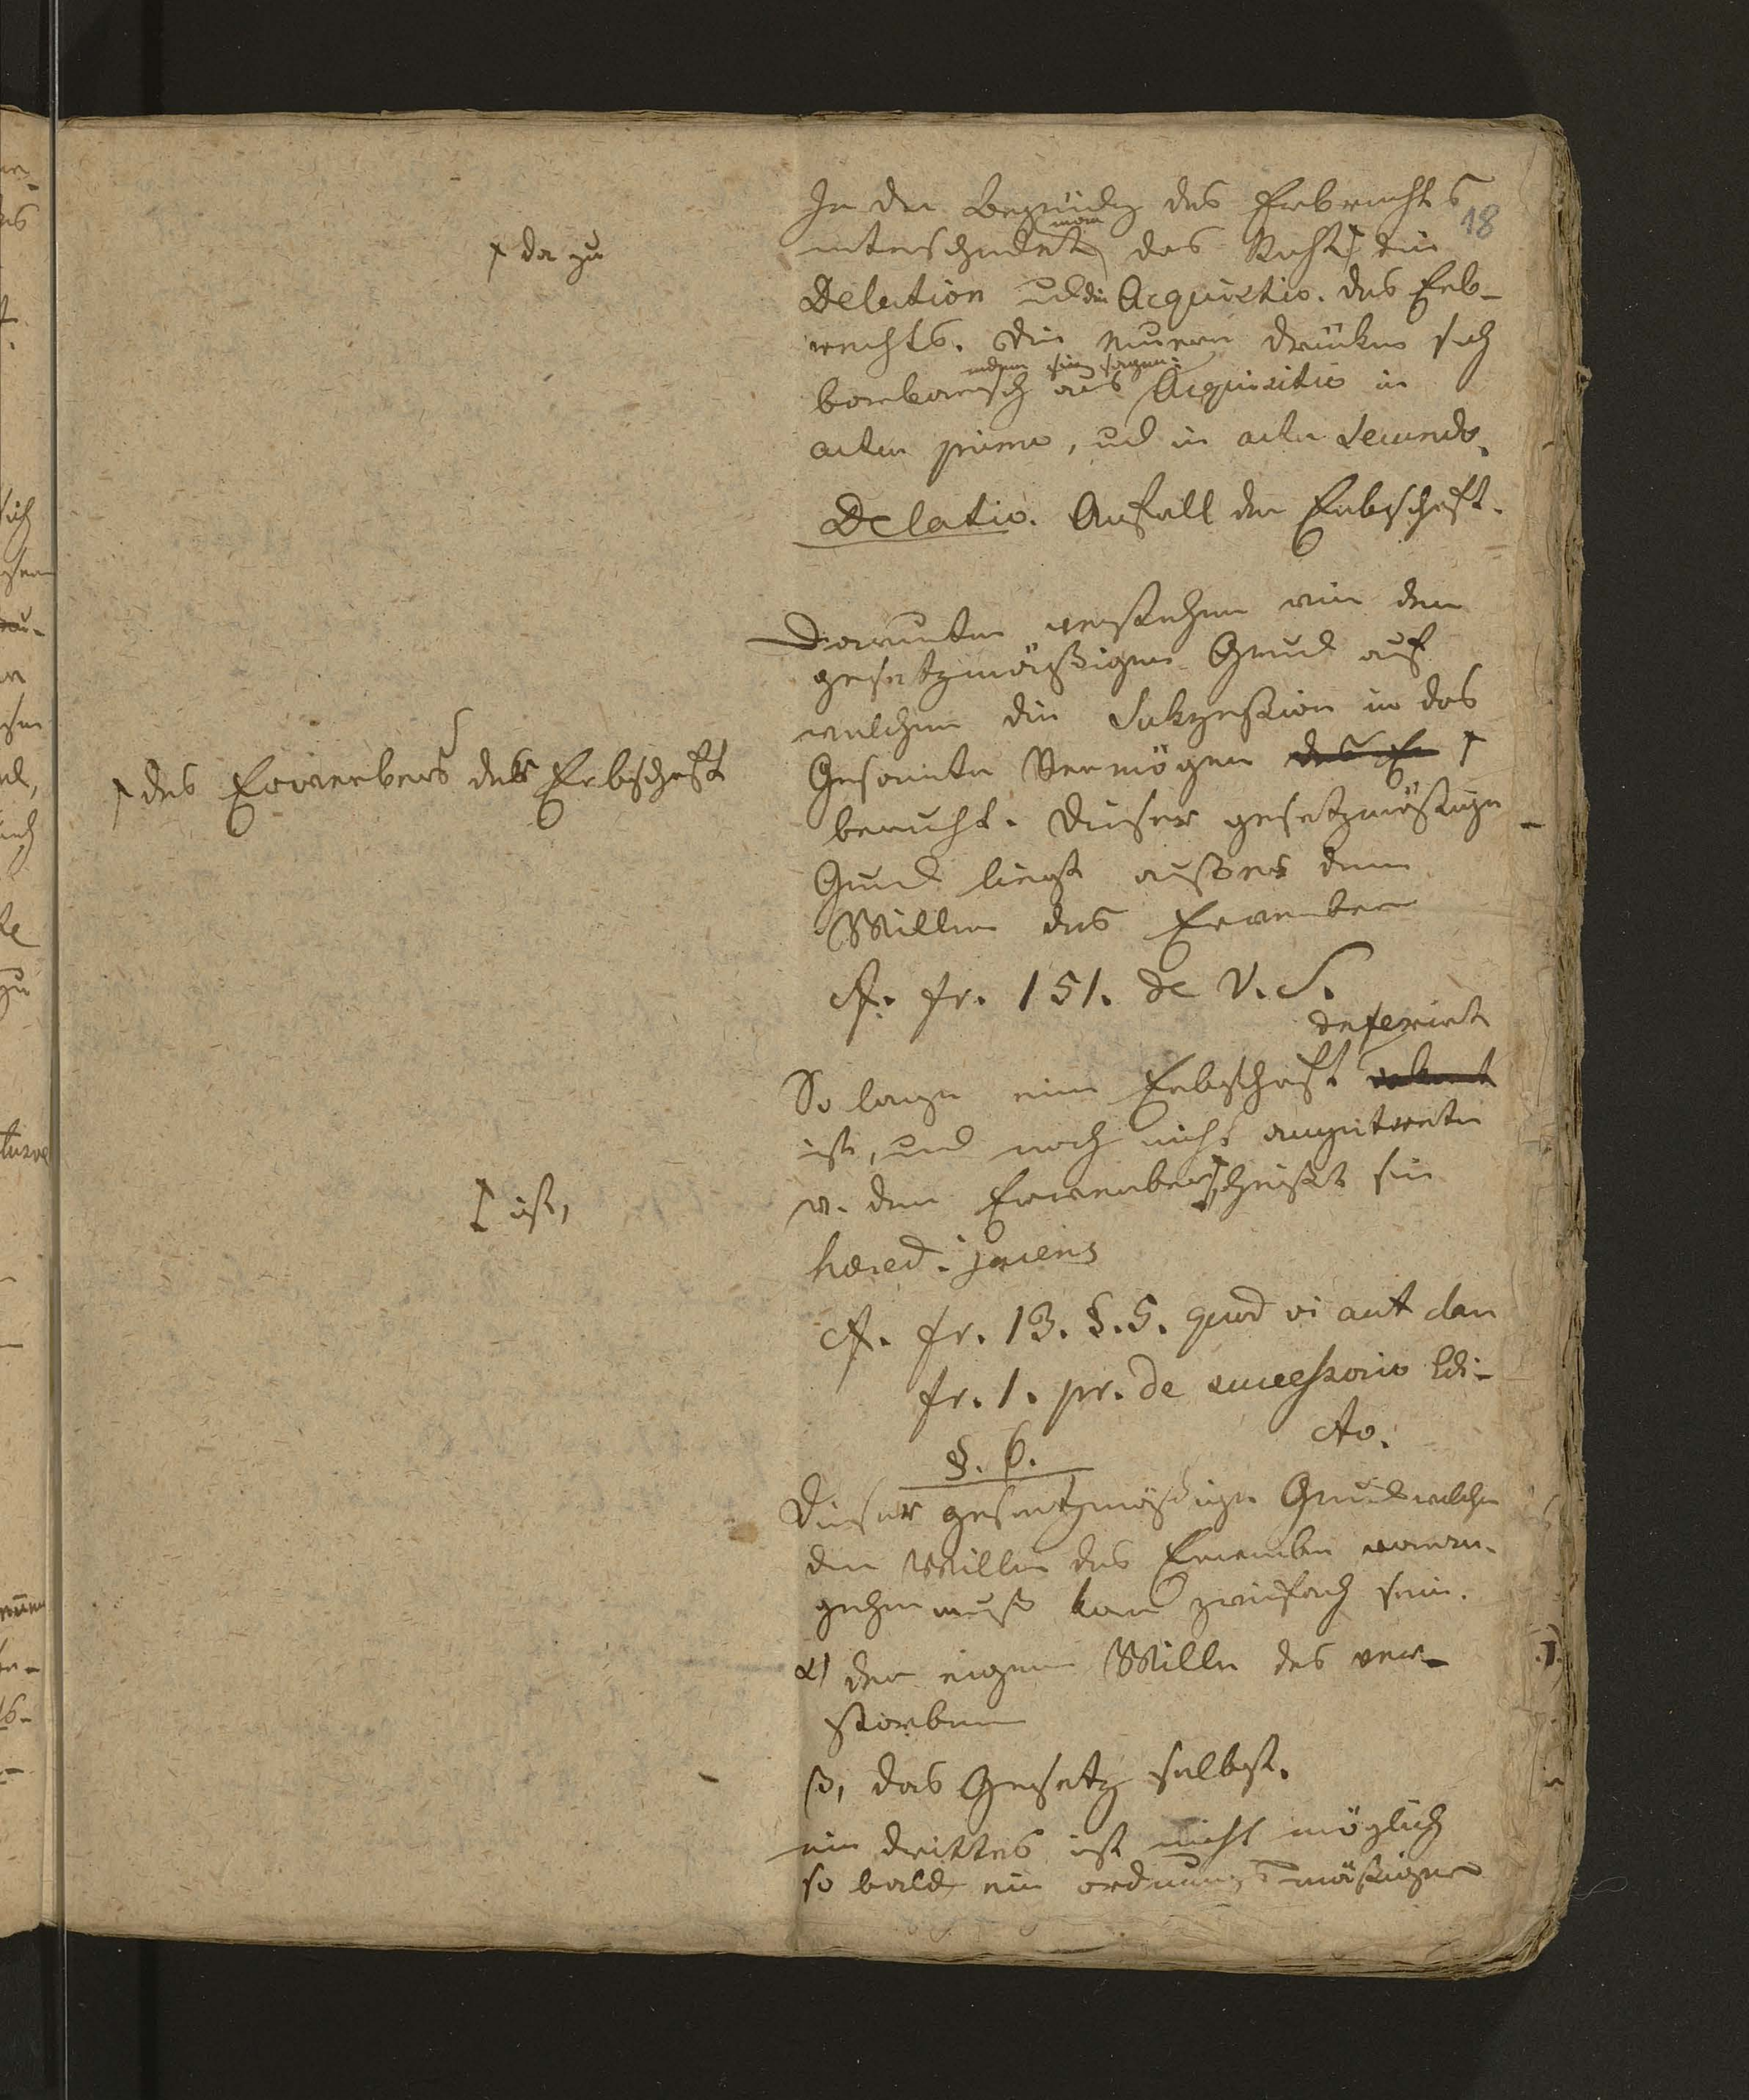 18
In der Begründg des Erbrechts
unterscheidet man das Recht ⸸ die
⸸ da zu
Delation und die Acquisitio. des Erb-
rechts. Die neuern drücken sich
barbarisch aus indem sie sagen: Acquisitio in
actu primo, und in actu secundo.
Delatio. Anfall der Erbschaft.
Darunter verstehen wir den
gesetzmäßigen Grund auf
welchem die Sukzession in das
Gesamte Vermögen ⸸
⸸ des Erwerbers der Erbschaft
beruht. Dieser gesetzmäßige
Grund liegt außer dem
Willen des Erwerbers
cf. fr. 151. de V. S.
So lange eine Erbschaft deferirt
ist, und noch nicht angetreten
v. dem Erwerber ⸸ heißt sie
⸸ ist,
hæred. jacens
cf. fr. 13. §. 5. quod vi aut clam
fr. 1. pr. de successorio Edi-
cto.
§. 6.
Dieser gesetzmäßige Grund welcher
dem Willen des Erwerbers voran-
gehen muß kann zweifach sein.
α) der eigene Wille des ver-
storbenen
β, das Gesetz selbst.
ein drittes ist nicht möglich
so bald ein ordnungsmäßiger